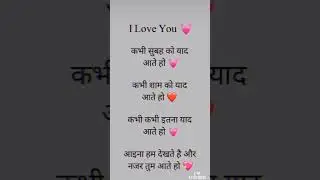 I Love You 💓
कभी सुबह को याद
आते हो 💓
कभी शाम को याद
आते हो ❤️
कभी कभी इतना याद
आते हो 💓
आइना हम देखते है और
नजर तुम आते हो 💖